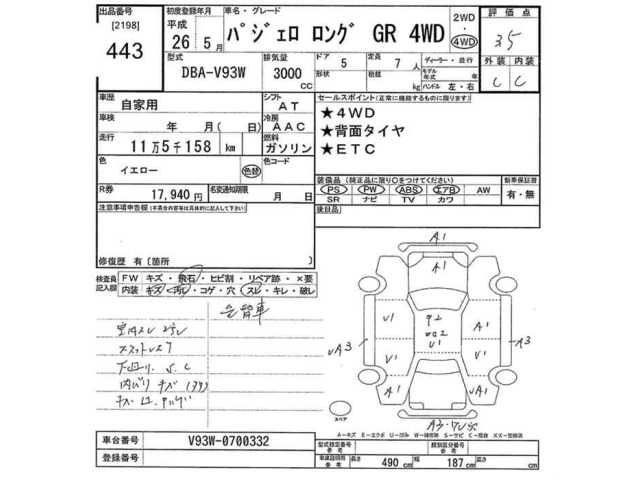 出品番号 初度登録年月 車名・グレード 2WD 評価点
[2198] 平成 パジェロ ロング GR 4WD ・
443 26年 5月 4WD 3.5
型式 排気量 ドア 定員 ディーラー・並行 外装 内装
DBA-V93W 3000 5 7 モデル年式 年 C C
CC 形状 積載 人 kg ハンドル 左・右
車歴 自家用 シフト AT セールスポイント(正常に機能するものに限ります)
車検 年 月(日) 冷房 AAC ★4WD
走行 11万5千158 km 燃料 ガソリン ★背面タイヤ
色 色コード ★ETC
イエロー 色替
R券 17,940円 名変通知期限 月 日
装備品(純正品に限り○をつけてください) 新車保証書
PS PW ABS エアB AW 有・無
SR ナビ TV カワ
注意事項申告欄(不具合内容等は具体的に記入して下さい) 後日品
修復歴 有[箇所 ]
検査員記入欄 FW キズ・飛石・ヒビ割・リペア跡・×要
内装 キズ・汚レ・コゲ・穴・スレ・キレ・破レ
色替車
下回り S.C
A1
A1
V1 A1
V1
V1 V1
A3
A1
スペア
A-キズ E-エクボ U-凹み W-補修跡 S-サビ C-腐食 XX-交換済
車台番号 V93W-0700332 型式指定番号 参考 類別区分番号 参考
登録番号 車庫証明用 参考 長さ 490 cm 幅 187 cm 高さ cm